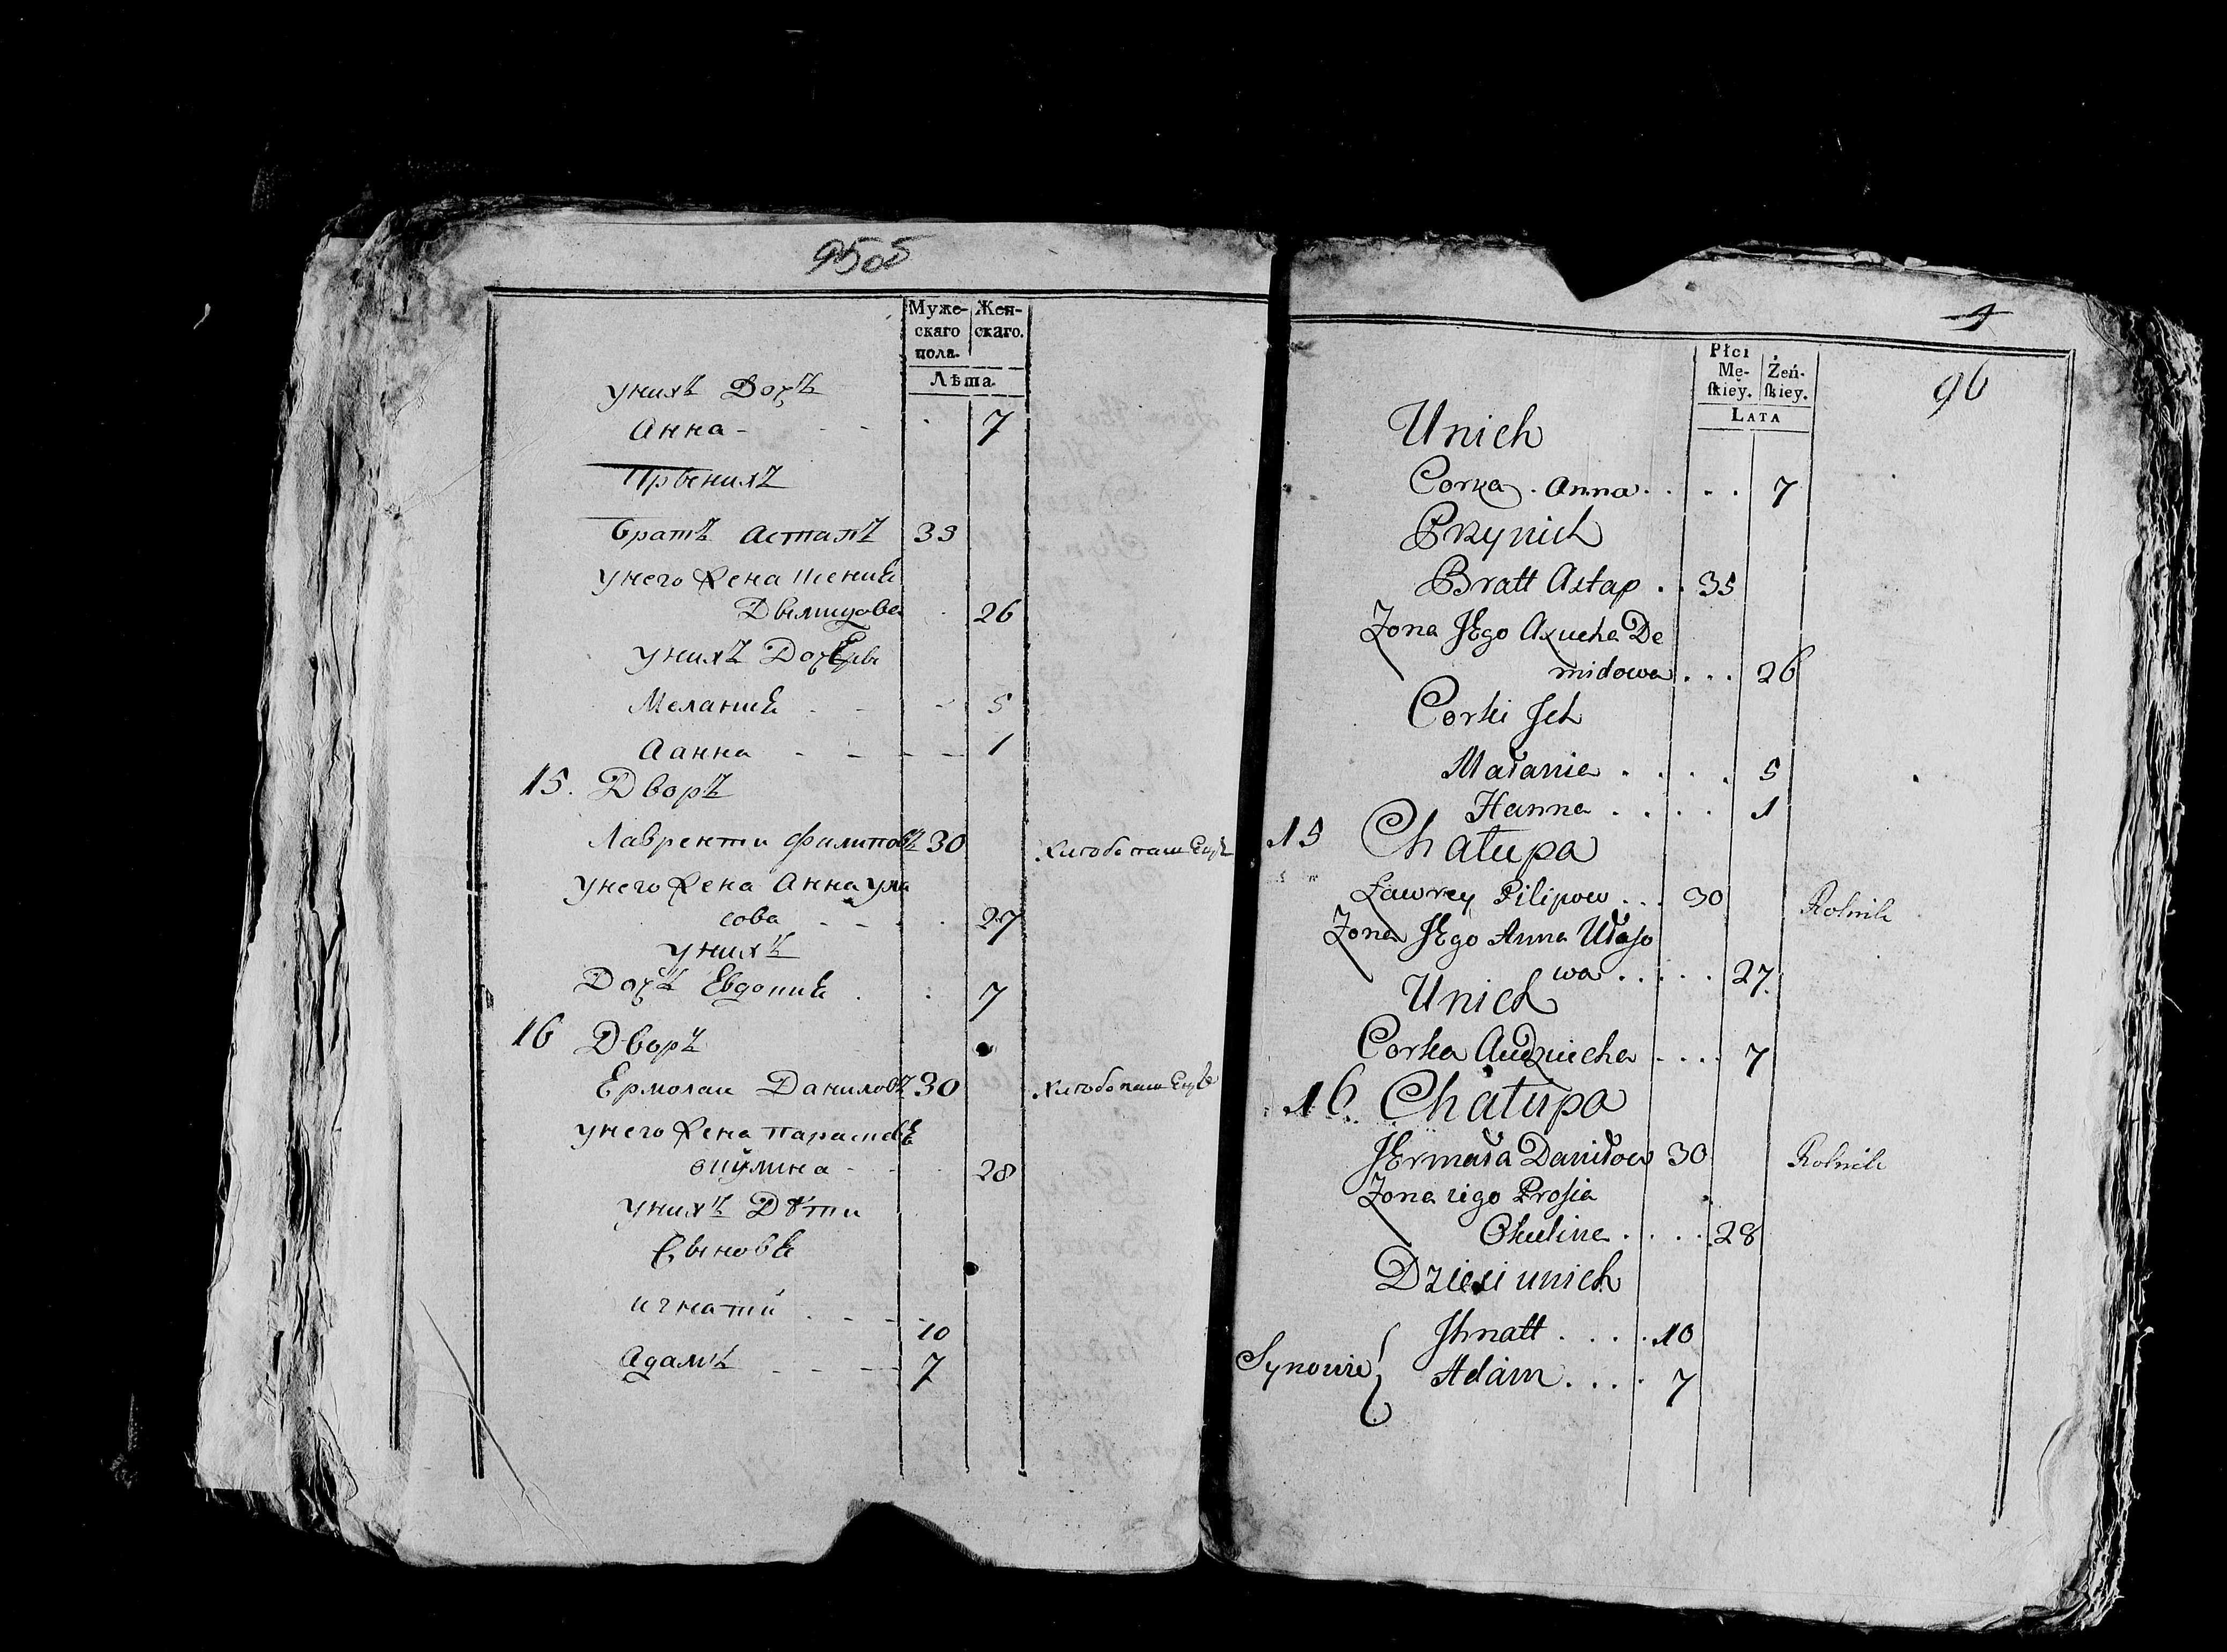 95об
Муже- Жен-
скаго скаго.
пола.
Лѣта.
унихъ Дочь
Анна - - - 7
Прѣнихъ
братъ астапъ 35
унего жена
Дѣмидова 26
унихъ Дочери
Мелания - - - 5
Аанна - - - - 1
15. Дворъ
Лавренти Филиповъ 30 хлѣбопашецъ
унего жена Анна ула
сова - - - 27
унихъ
Дочь Евдокия . . 7
16 Дворъ
Ермолаи Даниловъ 30 хлѣбопашецъ
унего жена параскевѣ
окулина - - - 28
унихъ Дѣти
Сыновя
игнатий . - - - 10
Адамъ - - - - 7
4
96
Płci
Mę- Żeń-
skiey. skiey.
LATA
Unich
Corka . Anna . . . . 7
Przynich
Bratt Astap . . 35
Zona JEgo Axucha De
midowa . . . 26
Corki Jch
Małania . . . . 5
Hanna . . . . 1
15 Chałupa
Ławrey Pilipow . . . 30 Rolnik
Zona JEgo Anna Ułaso
wa . . . . . 27.
Unich
Corka Audziucha . . . . 7
16. Chałupa
JErmała Daniłow 30 Rolnik
Zona iego Prosia
Okulina . . . . . 28
Dzieci unich
Jhnatt . . . . 10
Synowie { Adam . . . . 7